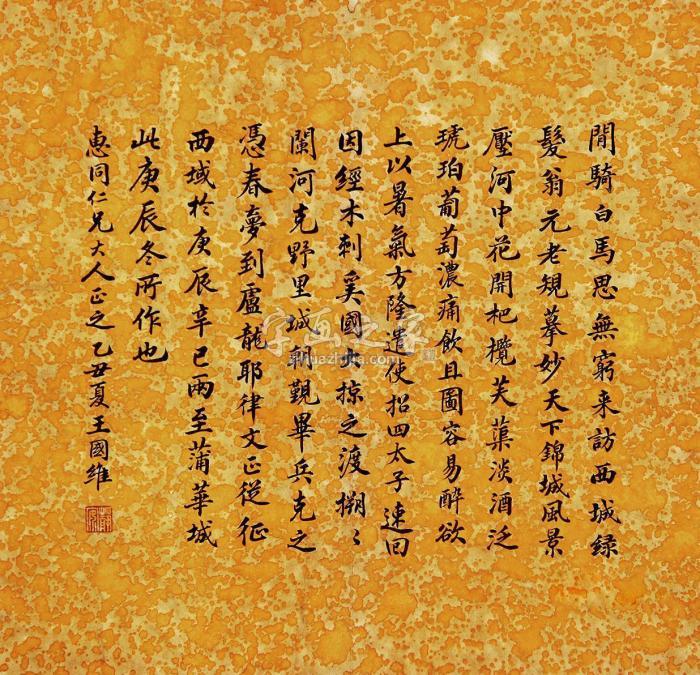 閒騎白馬思無窮来訪西城緑
髮翁元老規摹妙天下錦城風景
壓河中花開杷欖芙蕖淡酒泛
琥珀葡萄濃痛飲且圖容易醉欲
上以暑氣方隆遣使招四太子速回
因經木剌奚國大掠之渡搠〻
闌河克野里城朝覲畢兵克之
憑春夢到盧龍耶律文正從征
西域於庚辰辛巳兩至蒲華城
此庚辰冬所作也
惠同仁兄大人正之乙丑夏王國維
字画之家